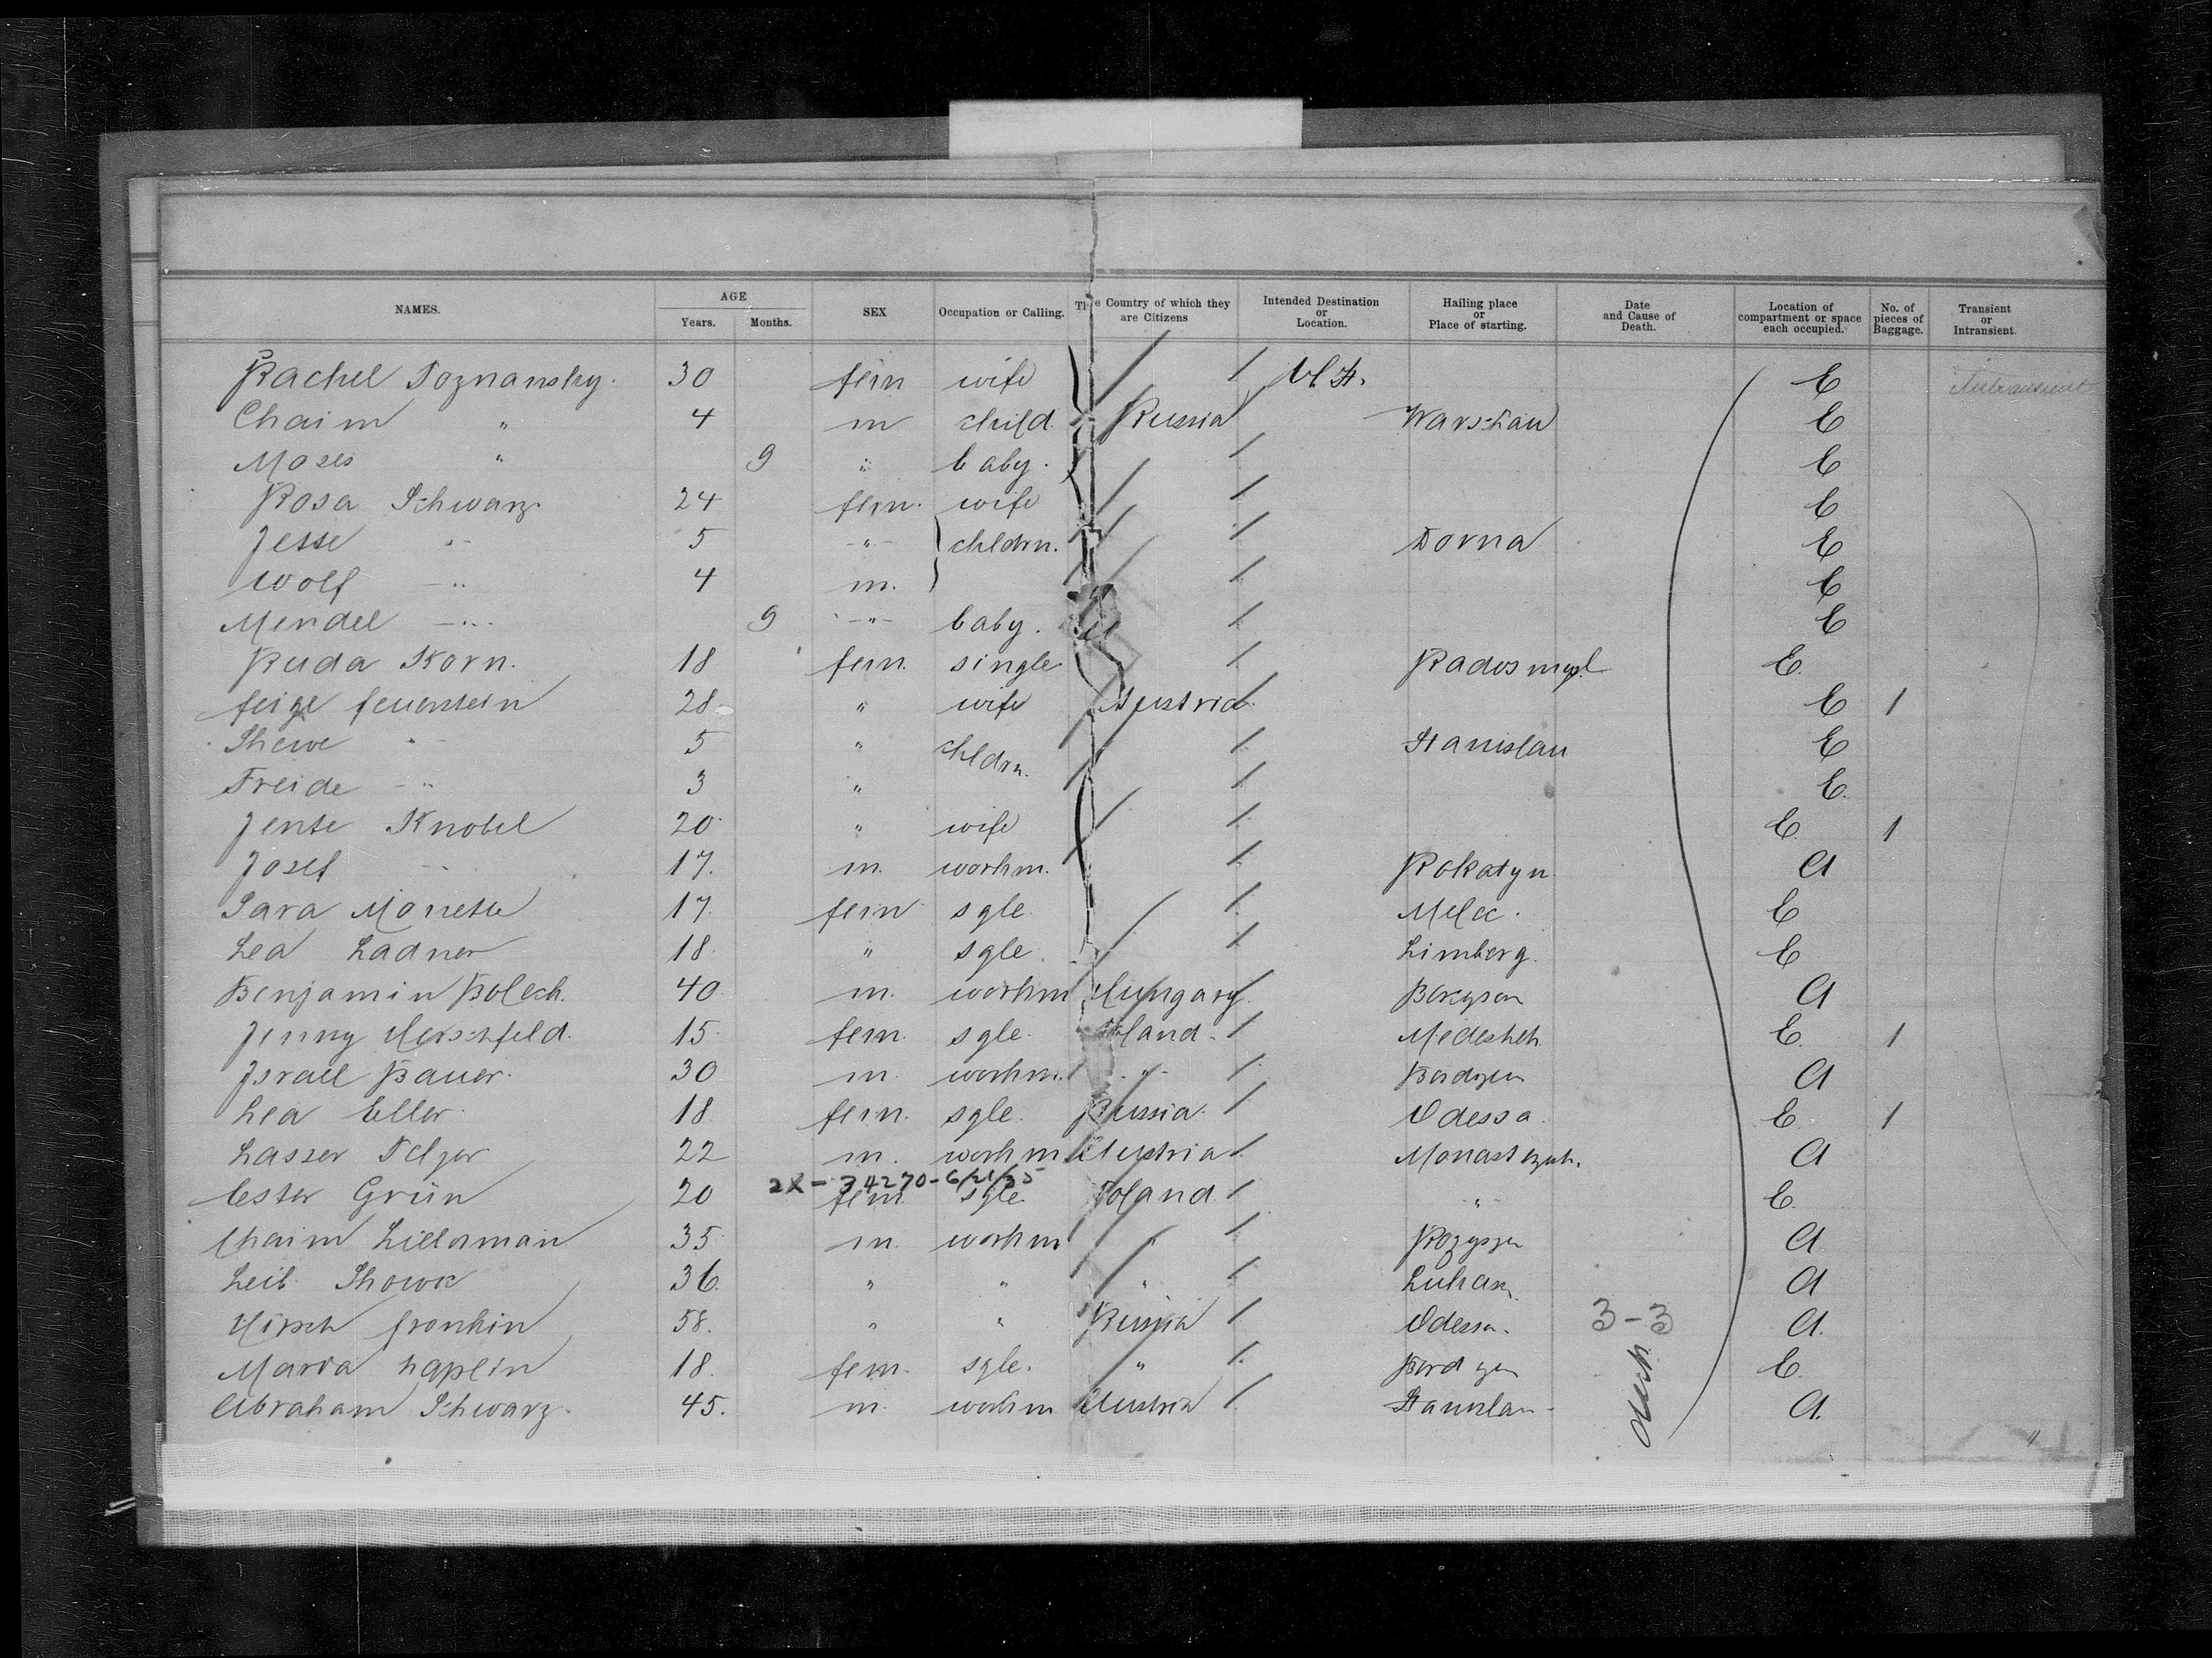 NAMES. AGE Years. Months. SEX Occupation or Calling. The Country of which they are Citizens Intended Destination or Location. Hailing place or Place of starting. Date and Cause of Death. Location of compartment or space each occupied. No. of pieces of Baggage. Transient or Intransient.
Rachel Poznansky. 30 fem wife N.Y. E Intransient
Chaim " 4 m child. Russia Warschau E
Moses " 9 " baby. E
Rosa Schwarz 24 fem. wife E
Jesse " 5 " chldrn. Dorna E
Wolf " 4 m. E
Mendel " 9 " baby. E
Ruda Korn. 18 fem. single Radosmysl E.
Feige Feuerstein 28 " wife Austria E 1
Shewe " 5 " chldrn. Stanislau E
Freide " 3 " E.
Jente Knobel 20 " wife E. 1
Josef " 17. m. workm. Rokatyn A
Sara 17. fem sgle Melec. E
Lea Ladner 18. " sgle. Limberg. E
Benjamin Bolech. 40 m. workm Hungary. A
Jenny Herschfeld. 15. fem. sgle. E. 1
Israel Bauer. 30 m. workm. " A
Lea Eller. 18 fem. sgle. Russia. Odessa. E 1
Lasser 22 m. workm Austria A
2X - 34270 - 6/21/35
Ester Grün 20 fem. sgle Poland. " E.
Chaim 35 m. workm " A
Leib Showk 36. " " " A
Hirsch Fronkin 58. " " Russia Odessa. 3-3 A.
Maria 18. fem. sgle. " E.
Abraham Schwarz. 45. m. workm Austria Stanislau A. "